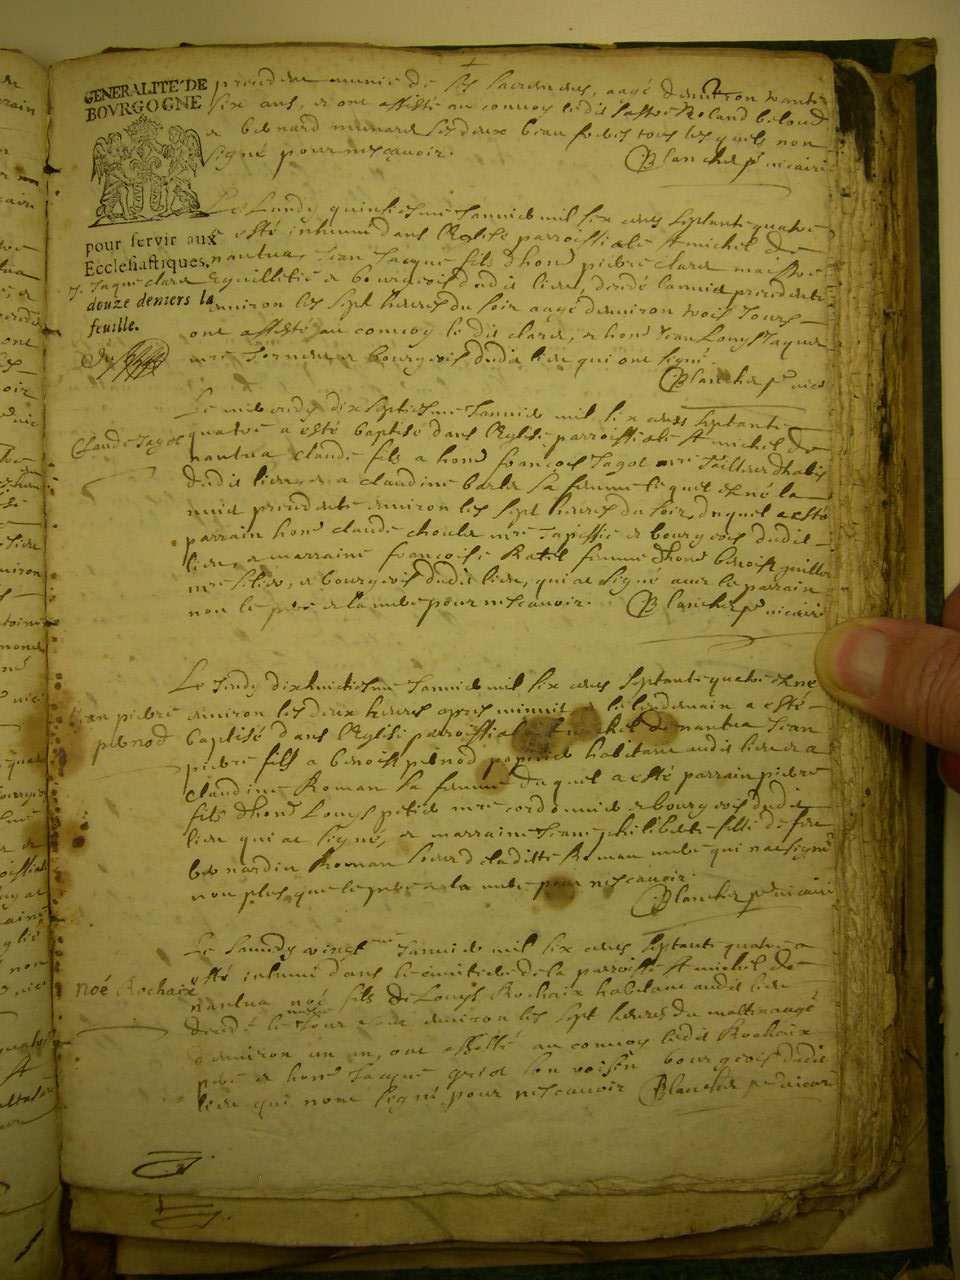 GENERALITÉ DE
BOVRGOGNE
pour servir aux
Ecclesiastiques,
douze deniers la
feuille.
precedente munie de ses sacremens, aagé denviron trante
six ans, et ont assisté au convoy ledit Roland beloud
et bernard munard ses deux beau freres tous lesquels nont
signé pour ne sçavoir. Blanchet p vicaire
Le Lundy quinsiesme Janvier mil six cens septante quatre
a esté inhumé dans l'Eglise parroissiale St michel de
nantua, Jean Jacque fils d'hon pierre claret maistre
J. Jaque claret
Eguilletier et bourgeois dudit lieu, decedé la nuit precedente
environ les sept heures du soir aagé denviron trois Jours
ont assisté au convoy le dit claret, et hon Jean Louys Jaquet
et bourgeois dudit lieu qui ont signé.
Blanchet p vicaire
Le mercredy dix septiesme Janvier mil six cens septante
Claude Jagot
quatre a esté baptisé dans l'Eglise parroissiale St michel de
nantua claude fils a hon françois Jagot mre Tailleur d'habis
dudit lieu, et a claudine barlet sa femme lequel est né la
nuit precedente environ les sept heures du soir, duquel a esté
parrain hon claude mre Tapissier et bourgeois dudit
lieu, et marraine françoise Ratel femme d'hon benoist guillot
mre sellier, et bourgeois dudit lieu, qui a signé avec le parrain
non le pere et la mere pour ne sçavoir. Blanchet p vicaire
Le Jeudy dixhuictiesme Janvier mil six cens septante quatre est né
Jean pierre
environ les deux heures apres minuit et le lendemain a esté
pernod
baptisé dans l'Eglise parroissiale St michel de nantua Jean
pierre fils a benoist pernod papetier habitant audit lieu et a
claudine Roman sa femme duquel a esté parrain pierre
fils d'hon Louys petit mre cordonnier et bourgeois dudit
lieu qui a signé, et marraine Jeane philiberte fille de feu
bernardin Roman soeur de laditte Roman mere qui n'a signé
non plus que le pere et la mere pour ne sçavoir.
Blanchet p vicaire
Le samedy vingt me Janvier mil six cens septante quatre a
esté inhumé dans le cimitiere de la parroisse St michel de
noé Rochaix
nantua noé fils de Louys Rochaix habitant audit lieu
decedé le Jour environ les sept heures du matin aagé
d'environ un an, ont assisté au convoy ledit Rochaix
pere et hon Jacque son voisin bourgeois dudit
lieu qui n'ont signé pour ne sçavoir Blanchet p vicaire